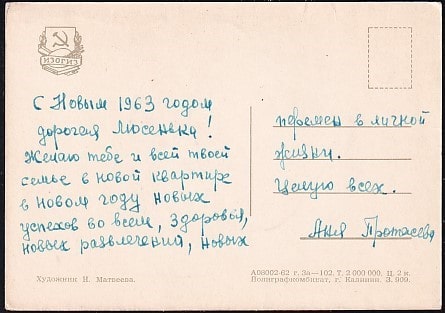 ИЗОГИЗ
С Новым 1963 годом
дорогая Люсенька!
Желаю тебе и всей твоей
семье в новой квартире
в новом году новых
успехов во всем, здоровья,
новых развлечений, новых
перемен в личной
жизни.
Целую всех.
Аня Протасова
Художник Н. Матвеева.
А08002-62 г. Зак—102. Т. 2 000 000. Ц. 2 к.
Полиграфкомбинат, г. Калинин. З. 909.